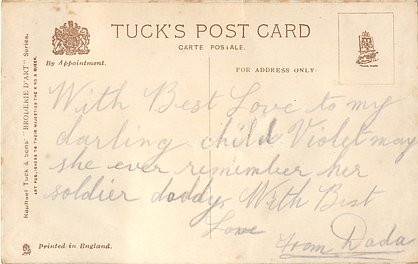 TUCK'S POST CARD
CARTE POSTALE.
By Appointment.
FOR ADDRESS ONLY.
TRADE MARK
Raphael Tuck & Sons' "BRODERIE D'ART" Series.
ART PUBLISHERS TO THEIR MAJESTIES THE KING & QUEEN.
With Best Love to my
darling child Violet may
she ever remember her
soldier daddy With Best
Love
from Dada
Printed in England.